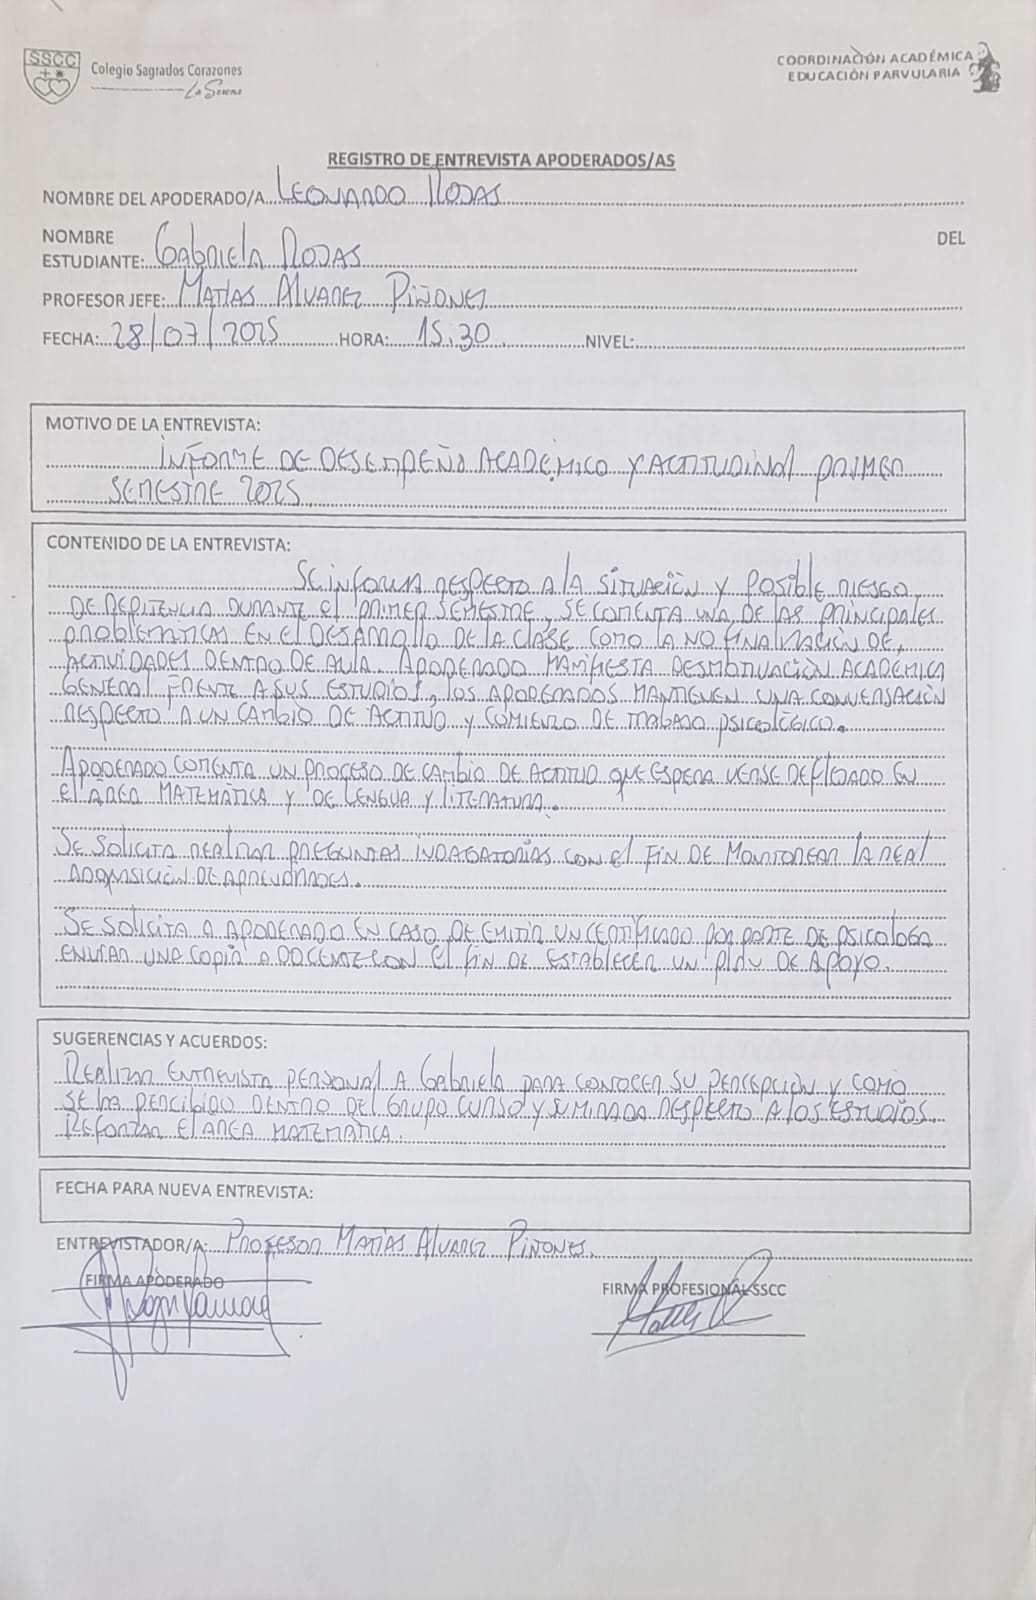 SSCC
Colegio Sagrados Corazones
La Serena
COORDINACIÓN ACADÉMICA
EDUCACIÓN PARVULARIA
REGISTRO DE ENTREVISTA APODERADOS/AS
NOMBRE DEL APODERADO/A LEONARDO ROJAS
NOMBRE DEL
ESTUDIANTE: GABRIELA ROJAS
PROFESOR JEFE: MATÍAS ALVAREZ PIÑONES
FECHA: 28/07/2025 HORA: 15:30 NIVEL:
MOTIVO DE LA ENTREVISTA:
INFORME DE DESEMPEÑO ACADÉMICO Y ACTITUDINAL PRIMER
SEMESTRE 2025
CONTENIDO DE LA ENTREVISTA:
SE INFORMA RESPECTO A LA SITUACIÓN Y POSIBLE RIESGO
DE REPITENCIA DURANTE EL PRIMER SEMESTRE, SE COMENTA UNA DE LAS PRINCIPALES
PROBLEMÁTICAS EN EL DESARROLLO DE LA CLASE COMO LA NO FINALIZACIÓN DE
ACTIVIDADES DENTRO DE AULA. APODERADO MANIFIESTA DESMOTIVACIÓN ACADÉMICA
GENERAL FRENTE A SUS ESTUDIOS, LOS APODERADOS MANTIENEN UNA CONVERSACIÓN
RESPECTO A UN CAMBIO DE ACTITUD Y COMIENZO DE TRABAJO PSICOLÓGICO.
APODERADO COMENTA UN PROCESO DE CAMBIO DE ACTITUD QUE ESPERA VERSE REFLEJADO EN
EL ÁREA MATEMÁTICA Y DE LENGUA Y LITERATURA.
SE SOLICITA REALIZAR PREGUNTAS INDAGATORIAS CON EL FIN DE MONITOREAR LA REAL
ADQUISICIÓN DE APRENDIZAJES.
SE SOLICITA A APODERADO EN CASO DE EMITIR UN CERTIFICADO POR PARTE DE PSICOLOGA
ENVIAR UNA COPIA A DOCENTE CON EL FIN DE ESTABLECER UN PLAN DE APOYO.
SUGERENCIAS Y ACUERDOS:
REALIZAR ENTREVISTA PERSONAL A GABRIELA PARA CONOCER SU PERCEPCIÓN Y COMO
SE HA PERCIBIDO DENTRO DEL GRUPO CURSO Y SU MIRADA RESPECTO A LOS ESTUDIOS
REFORZAR EL AREA MATEMÁTICA.
FECHA PARA NUEVA ENTREVISTA:
ENTREVISTADOR/A: PROFESOR MATÍAS ALVAREZ PIÑONES.
FIRMA APODERADO
FIRMA PROFESIONAL SSCC